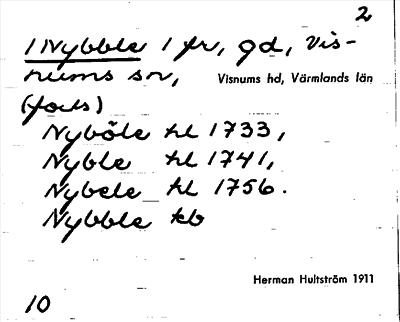 2
1 Nybble 1 fr, gd, Vis-
nums sn, Visnums hd, Värmlands län
(forts)
Nyböle hl 1733,
Nyble hl 1741,
Nybele hl 1756.
Nybble kb
Herman Hultström 1911
10